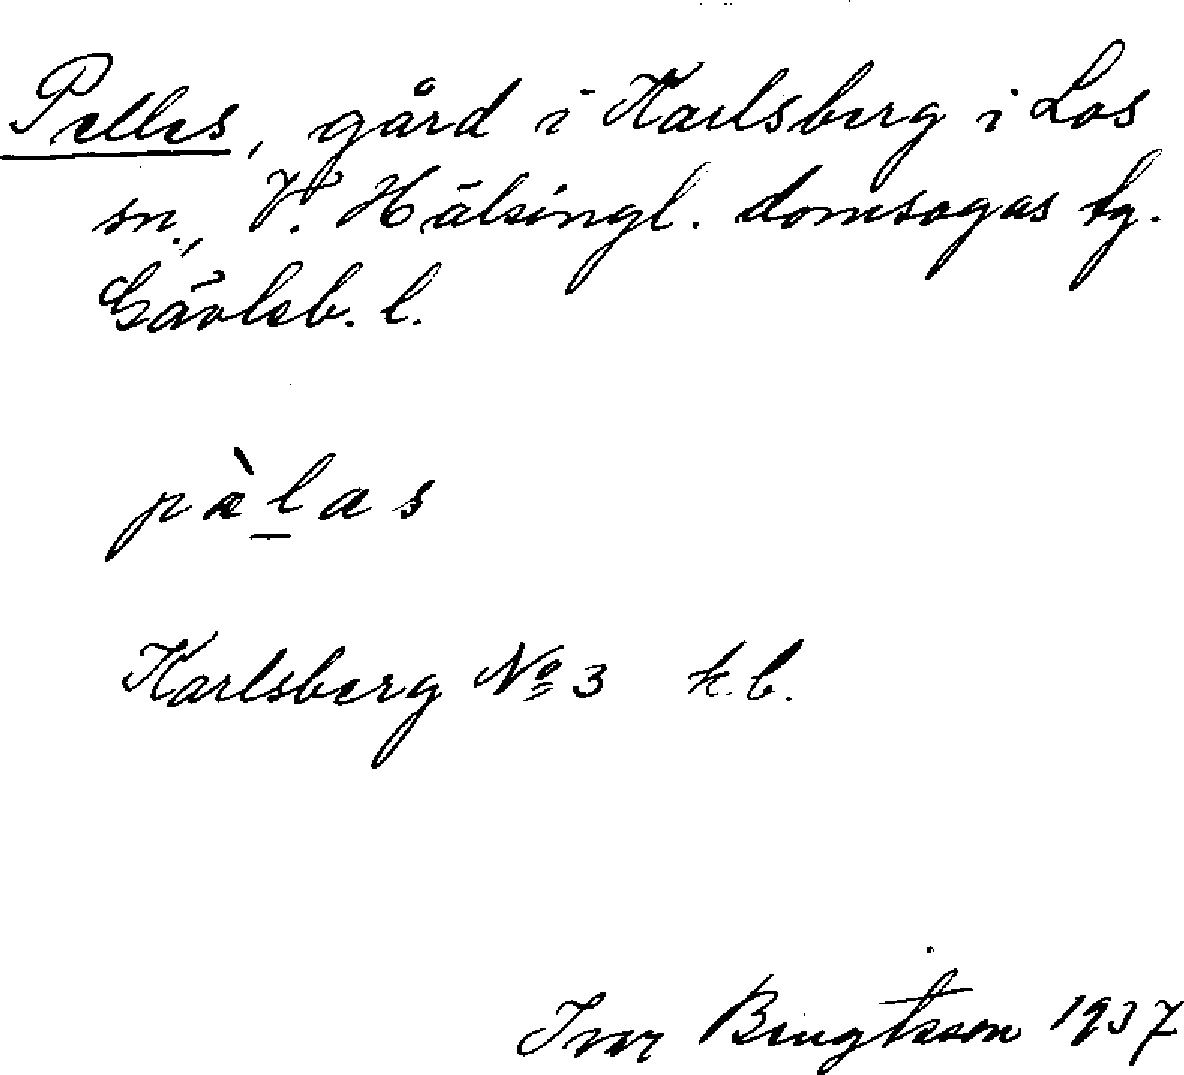 Pelles, gård i Karlsberg i Los
sn., V. Hälsingl. domsagas tg.
Gävleb. l.
pàlas
Karlsberg Nº 3 k.b.
Ivar Bengtsson 1937